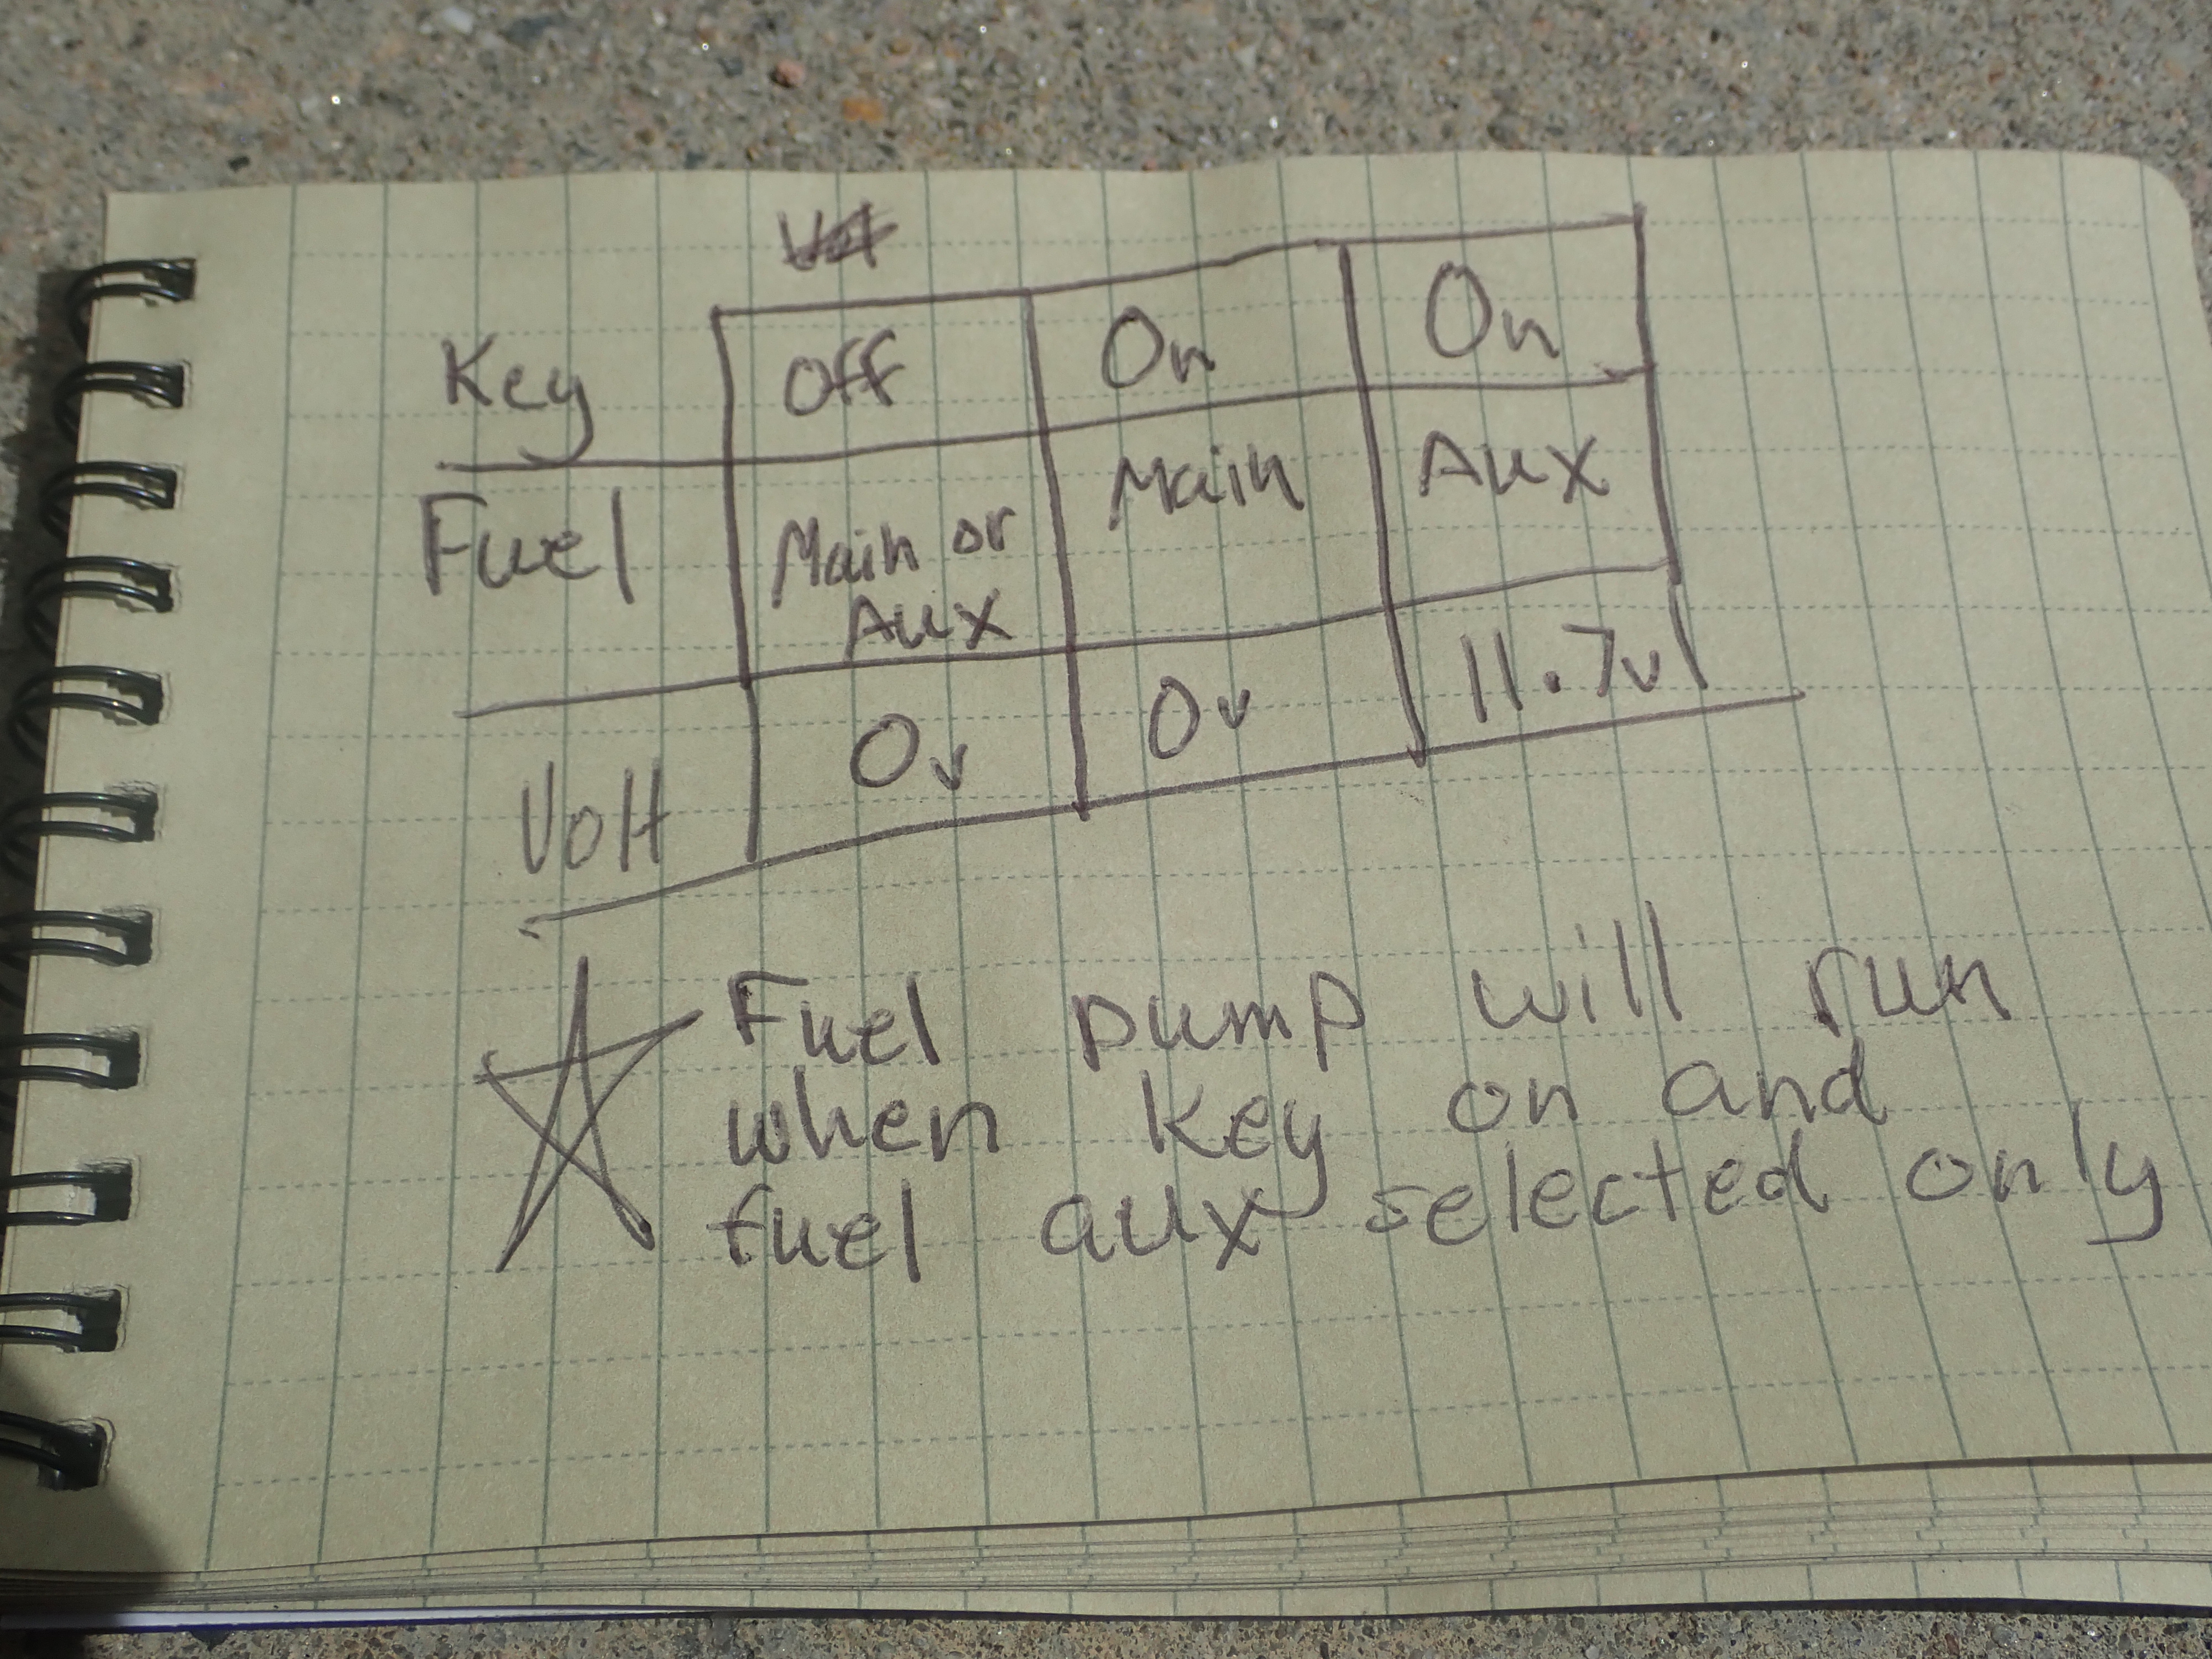 Key Off On On
Fuel Main or Main Aux
Aux
Volt 0v 0v 11.7v
Fuel pump will run
when key on and
fuel aux selected only